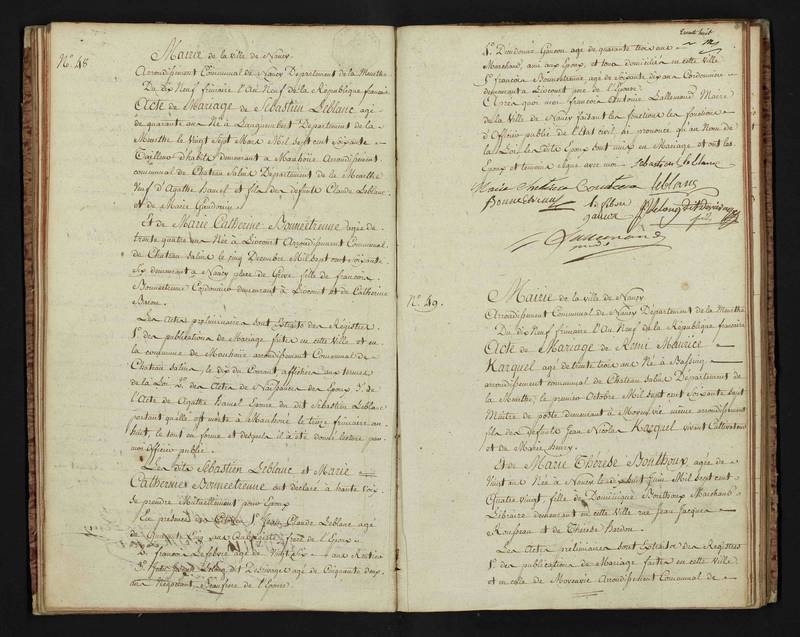 N.º 48
Mairie de la ville de Nancy
Arrondissement Communal de Nancy Département de la Meurthe
Du dix Neuf frimaire l'An Neuf de la République française
Acte de Mariage de Sébastien Leblanc agé
de quarante an Né à Département de la
Meurthe le vingt Sept Mars Mil sept cent soixante
Tailleur d'habits demeurant à Manhoüe Arrondissement
communal de Chateau Salins Département de la Meurthe
Veuf d'Agathe hanel et fils des defunts Claude Leblanc
et de Marie
Et de Marie Catherine Bonnetrenne agée de
trente quatre ans Née à Liocourt Arrondissement Communal
de Chateau Salins le cinq Decembre Mil sept cent soixante
Six demeurant à Nancy place de Grève fille de francois
Bonnetrenne Cordonnier demeurant à Liocourt et de Catherine
Les actes préliminaires sont Extraits des Registres
1.º des publications de Mariage faites en cette ville et en
la commune de Manhoüe arrondissement Communal de
Chateau Salins, le dix du Courant, affichées aux termes
de la Loi. 2.º des Actes de Naissances des Epoux 3.º de
l'Acte de Agathe hanel Epouse du dit Sébastien Leblanc
portant qu'elle est morte à Manhoüe le treize frimaire an
huit, le tout en forme et desquels il a été donné lecture par
moi officier public.
Les dits Sébastien Leblanc et Marie
Catherine Bonnetrenne ont déclaré à haute voix
se prendre Mutuellement pour Epoux
En présence de Claude Leblanc agé
de Cinquante Six ans frere de l'Epoux
S. francois Lefebvre agé de Vingt Six ans Routier
S. Leblanc dit agé de Cinquante deux
ans Negociant, Beaufrere de l'Epoux
S. Dieudonné Garcon agé de quarante trois ans
Marchand, ami aux Epoux, et tous domiciliés en cette ville
S. francois Bonnetrenne, agé de soixante dix ans Cordonnier
demeurant à Liocourt pere de l'Epouse
Après quoi moi francois Antoine Lallemand Maire
de la Ville de Nancy faisant les fonctions
d'Officier public de l'Etat civil, ai prononcé qu'au Nom de
la Loi, les dits Epoux sont unis en Mariage et ont les
Epoux et temoins signé avec moi Sebastien leblanc
Marie leblanc
Bonnetrenne
Lallemand
N.º 49.
Mairie de la ville de Nancy
Arrondissement Communal de Nancy Département de la Meurthe
Du dix Neuf frimaire l'An Neuf de la République française
Acte de Mariage de Remi Maurice
Karquel agé de trente trois ans Né à Bassing
arrondissement communal de Chateau Salins Département de
la Meurthe, le premier Octobre Mil sept cent soixante sept
Maître de poste demeurant à Moyenvic même arrondissement
fils des defunts Jean Nicolas Karquel vivant Cultivateur
et de Marie henry.
Et de Marie Thérèse Bonthoux agée de
Vingt ans Née à Nancy le Juin Mil sept cent
Quatre vingt, fille de Dominique Bonthoux Marchand
Libraire demeurant en cette ville rue Jean Jacques
Rousseau et de Thérèse
Les Actes préliminaires sont Extraits des Registres
1.º des publications de Mariage faites en cette Ville
et en celle de Moyenvic Arrondissement Communal de